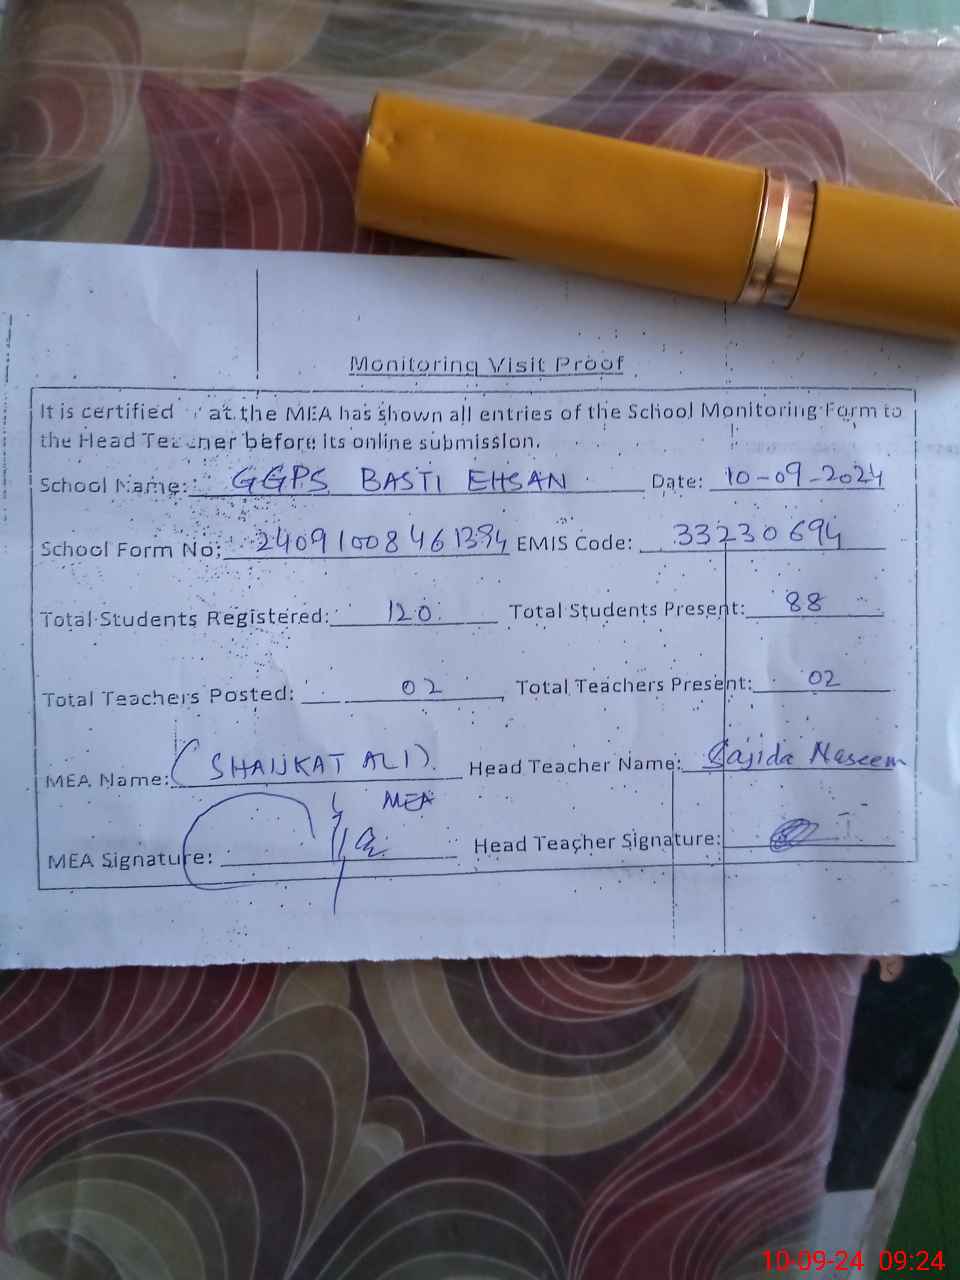 Monitoring Visit Proof
It is certified at the MEA has shown all entries of the School Monitoring Form to
the Head Teacher before its online submission.
School Name: GGPS BASTI EHSAN Date: 10-09-2024
School Form No: 24091008461384 EMIS Code: 33230694
Total Students Registered: 120 Total Students Present: 88
Total Teachers Posted: 02 Total Teachers Present: 02
MEA Name: (SHAUKAT ALI) Head Teacher Name: Sajida Naseem
MEA
MEA Signature: Head Teacher Signature:
10-09-24 09:24